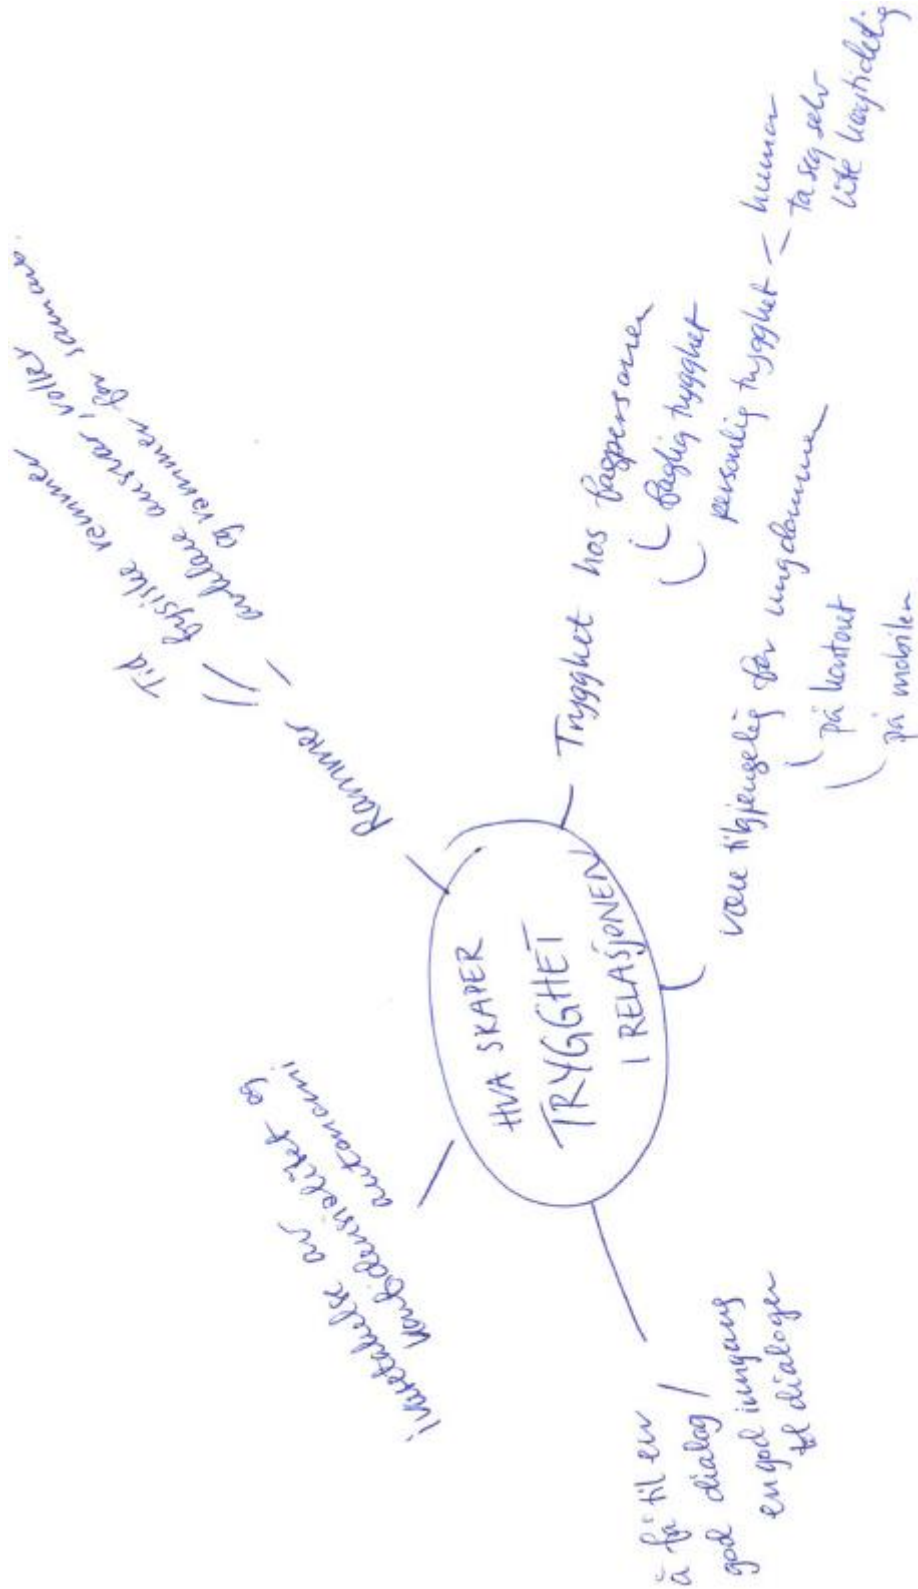 HVA SKAPER
TRYGGHET
I RELASJONEN
Rammer
Tid
fysiske rammer
avklare ansvar, roller
og rammer for samarb.
Trygghet hos fagpersonen
faglig trygghet
personlig trygghet
humor
ta seg selv
lite høytidelig
være tilgjengelig for ungdommen
på kontoret
på mobilen
å få til en
god dialog /
en god inngang
til dialogen
ivaretakelse av
konfidensialitet og
autonomi